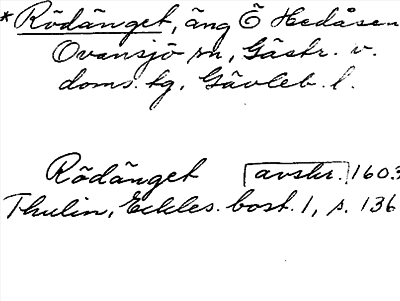 *Rödänget, äng Ö Hedåsen
Ovansjö sn, Gästr. v.
doms. tg, Gävleb. l.
Rödänget avskr. 1603
Thulin, Eckles. bost. 1, s. 136